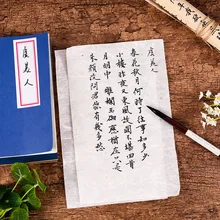 虞美人
春花秋月何時了往事知多少
小樓昨夜又東風故國不堪回首
月明中雕欄玉砌應猶在只是
朱顏改問君能有幾多愁
虞美人